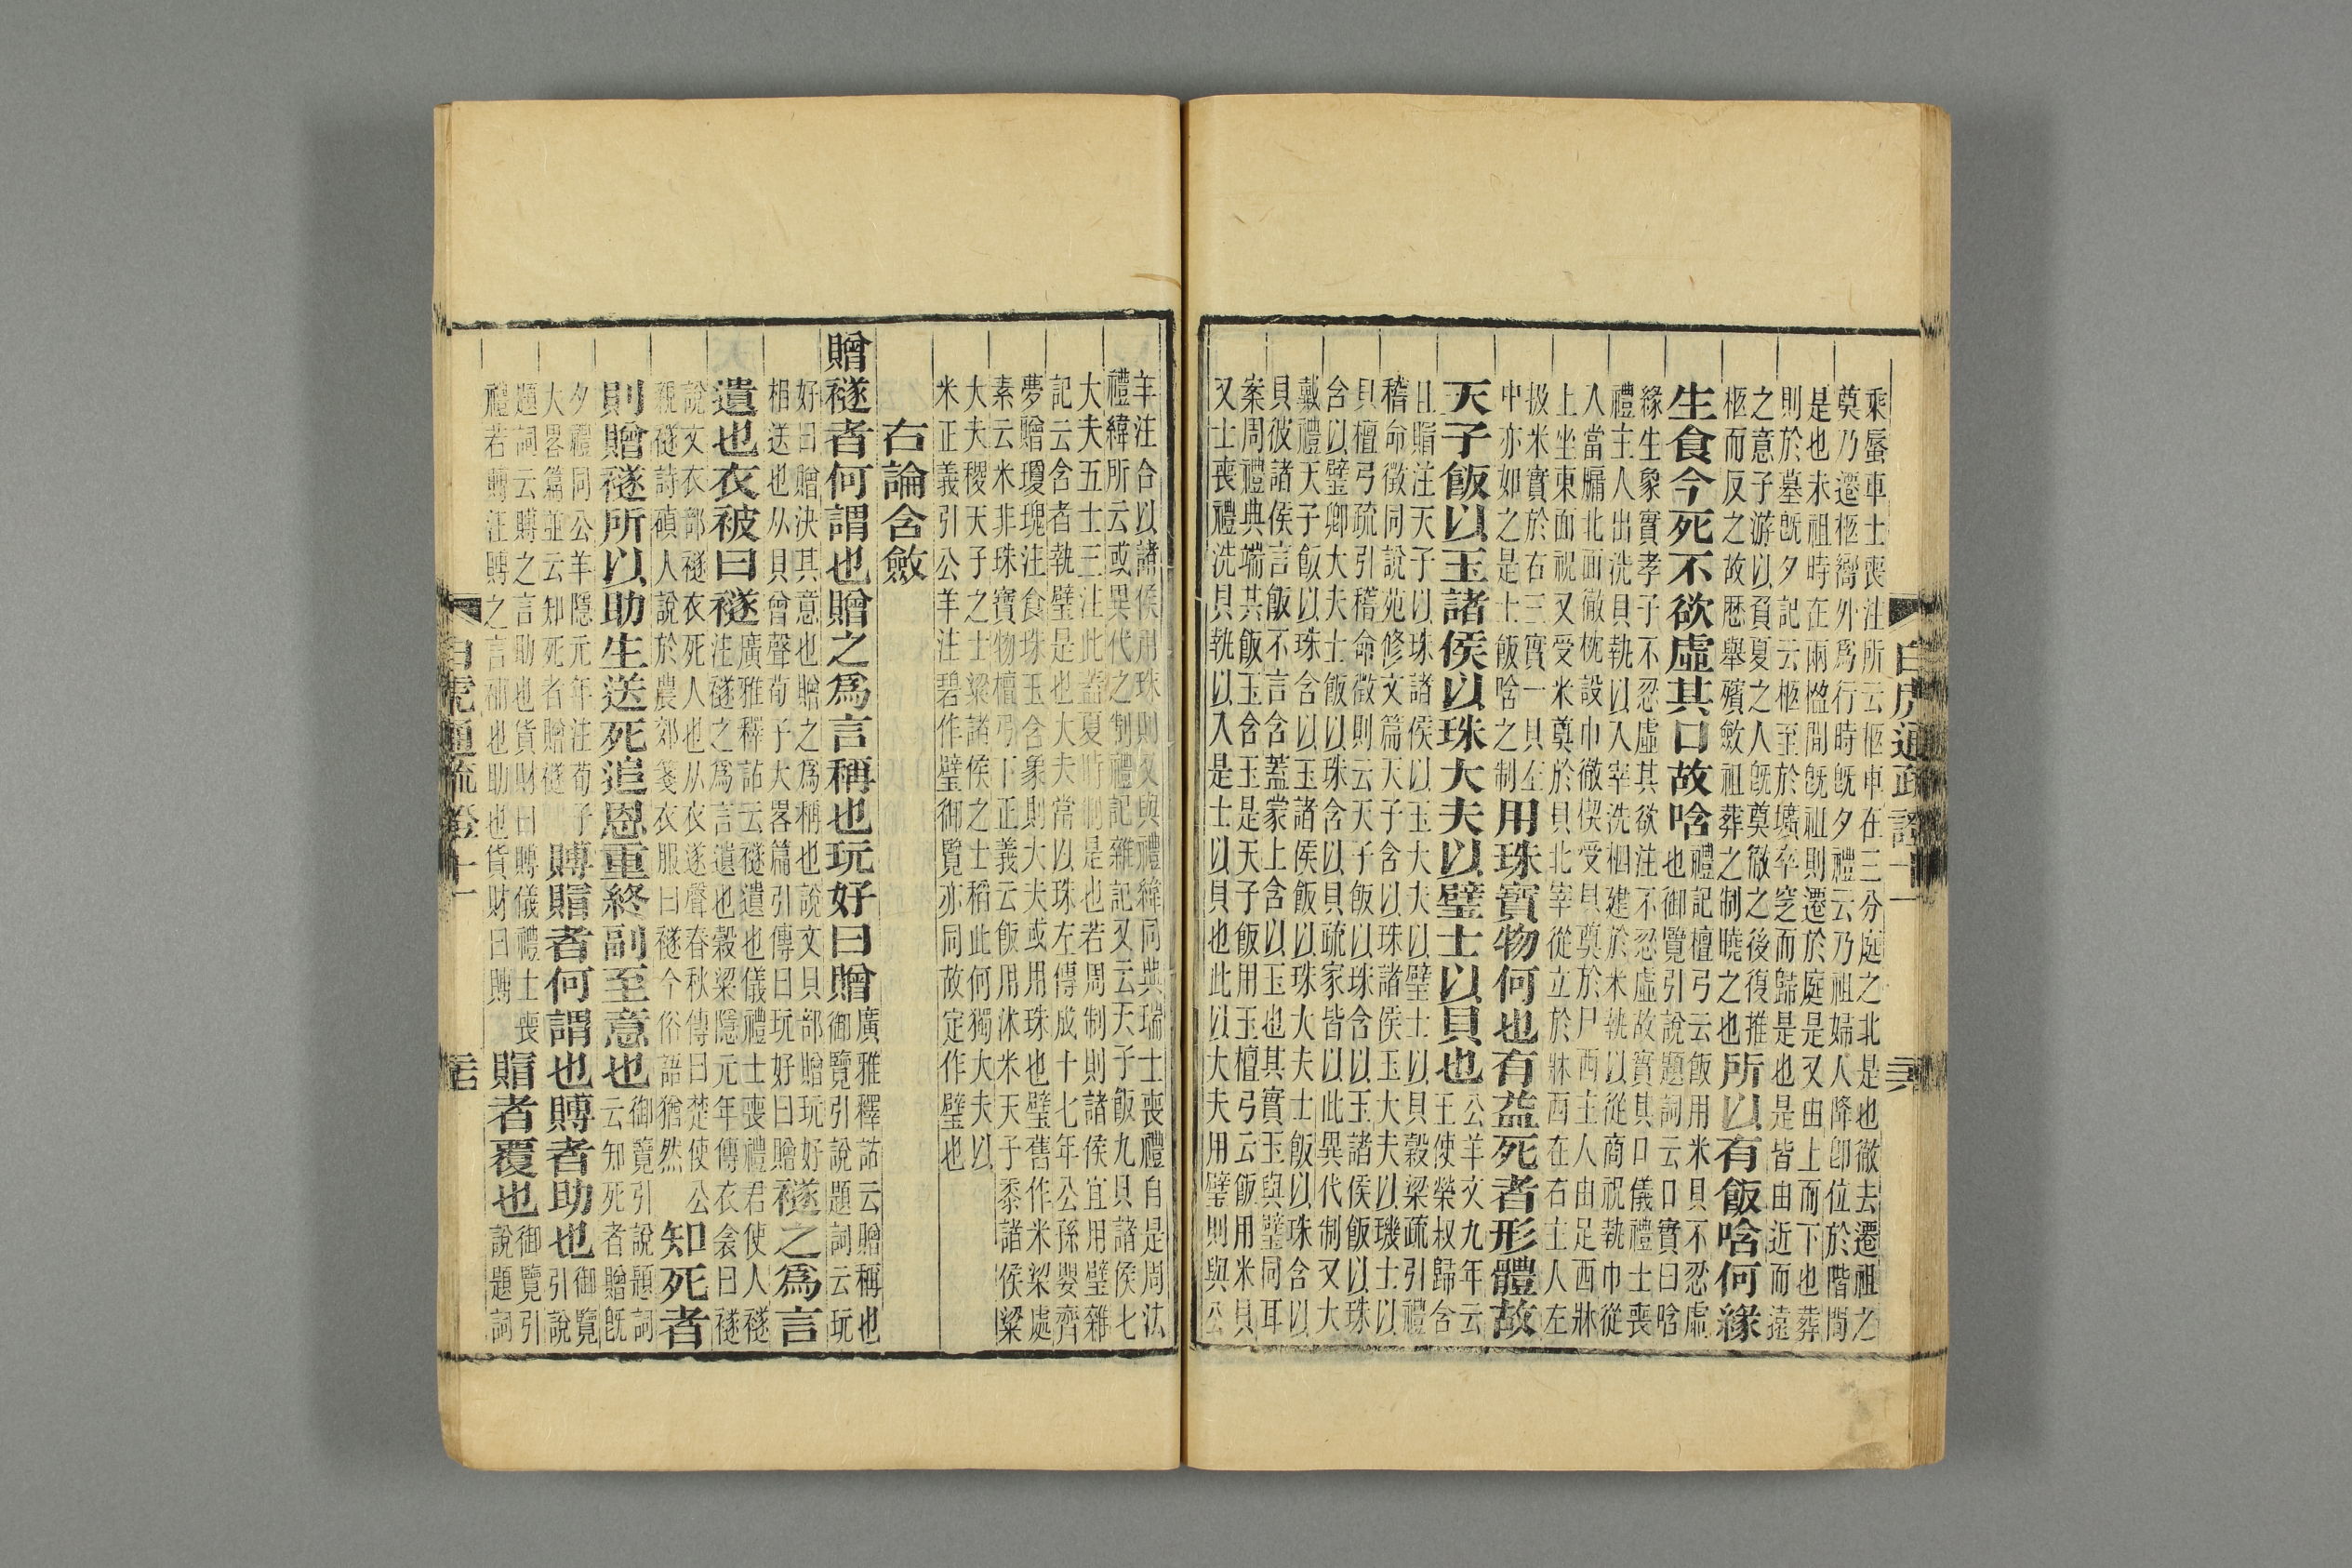 乘蜃車士喪注所云柩車在三分庭之北是也徹去遷祖之
奠乃遷柩嚮外爲行時旣夕禮云乃祖婦人降卽位於階閒
是也未祖時在兩楹閒旣祖則遷於庭是又由上而下也葬
則於墓旣夕記云柩至於壙卒窆而歸是也是皆由近而遠
之意子游以負夏之人旣奠徹之後復推
柩而反之故歷舉殯斂祖葬之制曉之也
所以有飯唅何緣
生食今死不欲虛其口故唅
禮記檀弓云飯用米貝不忍虛
也御覽引說題詞云口實曰唅
緣生象實孝子不忍虛其欲注不忍虛故實其口儀禮士喪
禮主人出洗貝執以入宰洗柶建於米執以從商祝執巾從
入當牖北面徹枕設巾徹楔受貝奠於尸西主人由足西牀
上坐東面祝又受米奠於貝北宰從立於牀西在右主人左
扱米實於右三實一貝左
中亦如之是士飯唅之制
用珠寶物何也有益死者形體故
天子飯以玉諸侯以珠大夫以璧士以貝也
公羊文九年云
王使榮叔歸含
且賵注天子以珠諸侯以玉大夫以璧士以貝穀梁疏引禮
稽命徵同說苑修文篇天子含以珠諸侯玉大夫以璣士以
貝檀弓疏引稽命徵則云天子飯以珠含以玉諸侯飯以珠
含以璧卿大夫士飯以珠含以貝疏家皆以此異代制又大
戴禮天子飯以珠含以玉諸侯飯以珠大夫士飯以珠含以
貝彼諸侯言飯不言含蓋蒙上含以玉也其實玉與璧同耳
案周禮典瑞共飯玉含玉是天子飯用玉檀弓云飯用米貝
又士喪禮洗貝執以入是士以貝也此以大夫用璧則與公
羊注合以諸侯用珠則又與禮緯同典瑞士喪禮自是周法
禮緯所云或異代之制禮記雜記又云天子飯九貝諸侯七
大夫五士三注此蓋夏時制是也若周制則諸侯宜用璧雜
記云含者執璧是也大夫當以珠左傳成十七年公孫嬰齊
夢贈瓊瑰注食珠玉含象則大夫或用珠也璧舊作米梁處
素云米非珠寶物檀弓下正義云飯用沐米天子黍諸侯粱
大夫稷天子之士粱諸侯之士稻此何獨大夫以
米正義引公羊注碧作璧御覽亦同故定作璧也
右論含斂
贈襚者何謂也贈之爲言稱也玩好曰贈
廣雅釋詁云贈稱也
御覽引說題詞云玩
好曰贈決其意也贈之爲稱也說文貝部贈玩好
相送也从貝曾聲荀子大畧篇引傳曰玩好曰贈
襚之爲言
遺也衣被曰襚
廣雅釋詁云襚遺也儀禮士喪禮君使人襚
注襚之爲言遺也穀梁隱元年傳衣衾曰襚
說文衣部襚衣死人也从衣遂聲春秋傳曰楚使公
親襚詩碩人說於農郊箋衣服曰襚今俗語猶然
知死者
則贈襚所以助生送死追恩重終副至意也
御覽引說題詞
云知死者贈旣
夕禮同公羊隱元年注荀子
大畧篇並云知死者贈襚
賻賵者何謂也賻者助也
御覽
引說
題詞云賻之言助也貨財曰賻儀禮士喪
禮若賻注賻之言補也助也貨財曰賻
賵者覆也
御覽引
說題詞